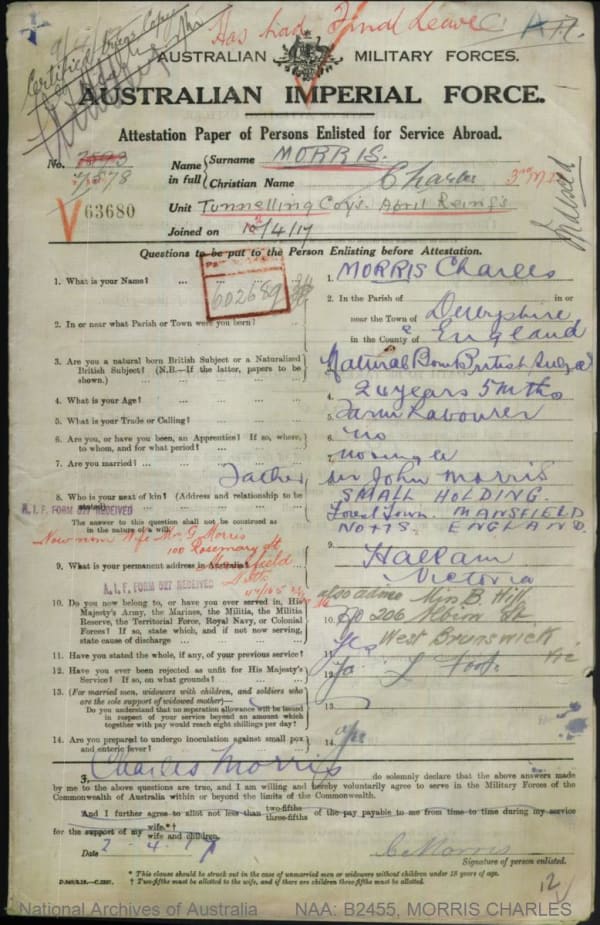 Certified Copy
Has had Final Leave
AUSTRALIAN MILITARY FORCES.
AUSTRALIAN IMPERIAL FORCE.
Attestation Paper of Persons Enlisted for Service Abroad.
No. 7593
7878
Name in full { Surname MORRIS.
Christian Name Charles
V63680
Unit Tunnelling Coys. April Reinf's
Joined on 10/4/17
Questions to be put to the Person Enlisting before Attestation.
602689
1. What is your Name? ... 1. MORRIS Charles
2. In or near what Parish or Town were you born? ... 2. In the Parish of Derbyshire in or
near the Town of
in the County of England
3. Are you a natural born British Subject or a Naturalized
British Subject? (N.B.—If the latter, papers to be
shown.) Natural Born British Subject
4. What is your Age? ... 4. 24 years 5 Mths
5. What is your Trade or Calling? ... 5. Farm Labourer
6. Are you, or have you been, an Apprentice? If so, where,
to whom, and for what period? ... 6. no
7. Are you married? ... 7.
8. Who is your next of kin? (Address and relationship to be
stated) Father John Morris
SMALL HOLDING.
Forest Town. MANSFIELD
NOTTS. ENGLAND.
A.I.F. FORM 527 RECEIVED
The answer to this question shall not be construed as
in the nature of a will.
Now nom Wife Mrs G Morris
100 Rosemary St
Mansfield
Notts
9. What is your permanent address in Australia? 9. Hallam
Victoria
A.I.F. FORM 527 RECEIVED
also advise Miss B. Hill
206 Albion St
West Brunswick
Vic
10. Do you now belong to, or have you ever served in, His
Majesty's Army, the Marines, the Militia, the Militia
Reserve, the Territorial Force, Royal Navy, or Colonial
Forces? If so, state which, and if not now serving,
state cause of discharge ... 10.
11. Have you stated the whole, if any, of your previous service? 11. yes
12. Have you ever been rejected as unfit for His Majesty's
Service? If so, on what grounds? ... 12.
13. (For married men, widowers with children, and soldiers who
are the sole support of widowed mother)—
Do you understand that no separation allowance will be issued
in respect of your service beyond an amount which
together with pay would reach eight shillings per day? 13.
14. Are you prepared to undergo inoculation against small pox
and enteric fever? ... 14. yes
I, Charles Morris do solemnly declare that the above answers made
by me to the above questions are true, and I am willing and hereby voluntarily agree to serve in the Military Forces of the
Commonwealth of Australia within or beyond the limits of the Commonwealth.
And I further agree to allot not less than two-fifths three-fifths of the pay payable to me from time to time during my service
for the support of my wife.*† wife and children.
Date 2-4-17
C. Morris
Signature of person enlisted.
* This clause should be struck out in the case of unmarried men or widowers without children under 18 years of age.
† Two-fifths must be allotted to the wife, and if there are children three-fifths must be allotted.
12
National Archives of Australia NAA: B2455, MORRIS CHARLES